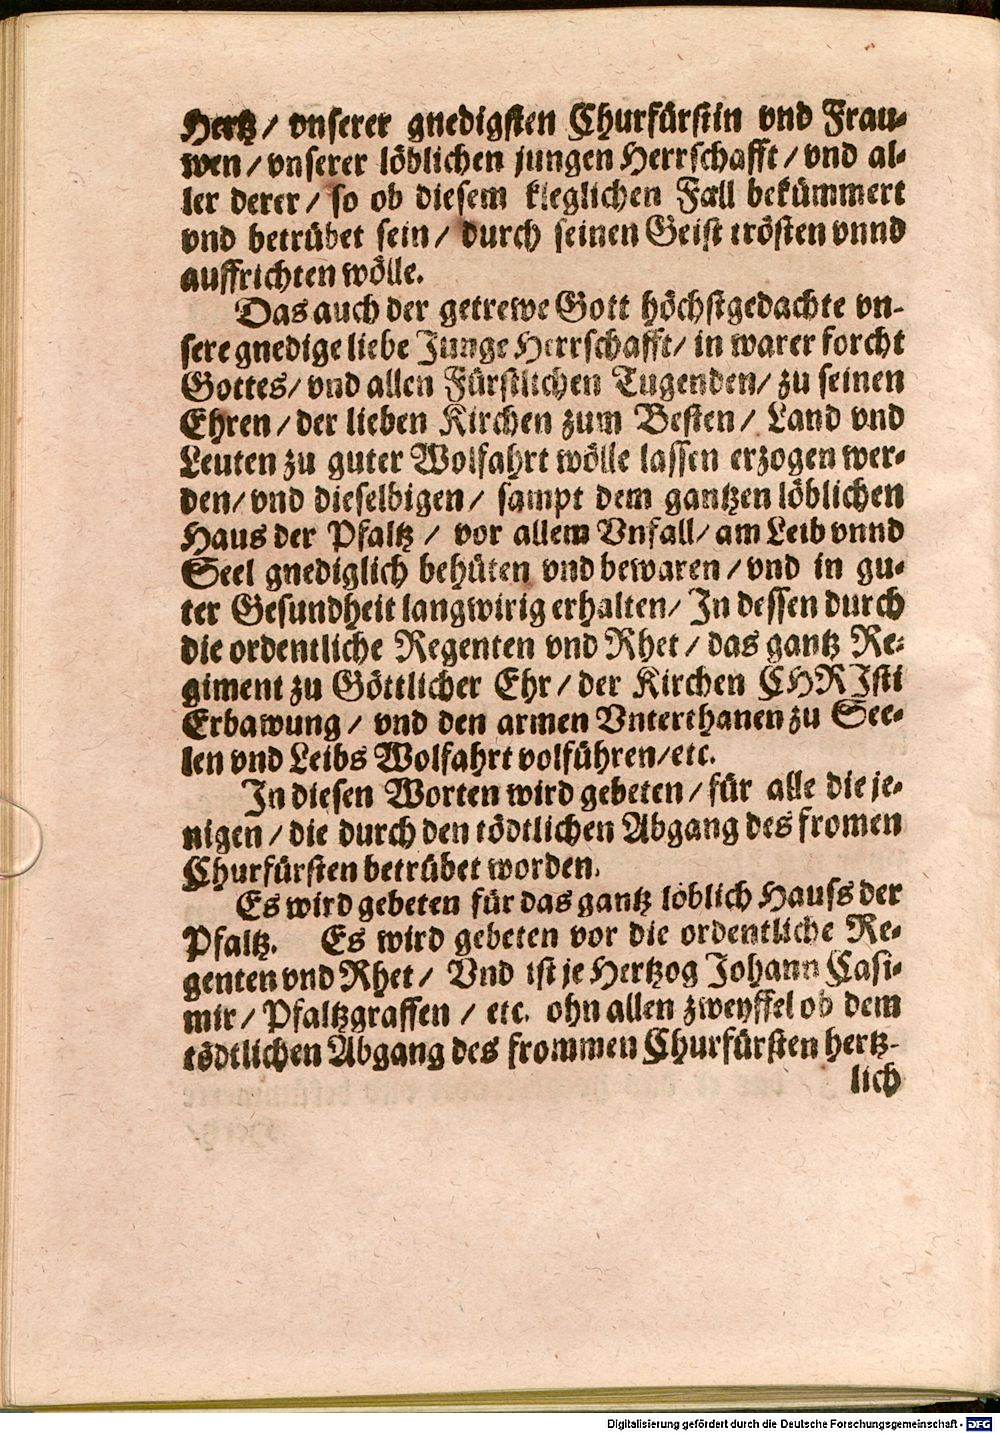 Hertz / vnserer gnedigsten Churfürstin vnd Frau-
wen / vnserer löblichen jungen Herrschafft / vnd al-
ler derer / so ob diesem kleglichen Fall bekümmert
vnd betrübet sein / durch seinen Geist trösten vnnd
auffrichten wölle.
Das auch der getrewe Gott höchstgedachte vn-
sere gnedige liebe Junge Herrschafft / in warer forcht
Gottes / vnd allen Fürstlichen Tugenden / zu seinen
Ehren / der lieben Kirchen zum Besten / Land vnd
Leuten zu guter Wolfahrt wölle lassen erzogen wer-
den / vnd dieselbigen / sampt dem gantzen löblichen
Haus der Pfaltz / vor allem Vnfall / am Leib vnnd
Seel gnediglich behüten vnd bewaren / vnd in gu-
ter Gesundheit langwirig erhalten / In dessen durch
die ordentliche Regenten vnd Rhet / das gantz Re-
giment zu Göttlicher Ehr / der Kirchen CHRIsti
Erbawung / vnd den armen Vnterthanen zu See-
len vnd Leibs Wolfahrt volführen / etc.
In diesen Worten wird gebeten / für alle die je-
nigen / die durch den tödtlichen Abgang des fromen
Churfürsten betrübet worden.
Es wird gebeten für das gantz löblich Hauss der
Pfaltz. Es wird gebeten vor die ordentliche Re-
genten vnd Rhet / Vnd ist je Hertzog Johann Casi-
mir / Pfaltzgraffen / etc. ohn allen zweyffel ob dem
tödtlichen Abgang des frommen Churfürsten hertz-
lich
Digitalisierung gefördert durch die Deutsche Forschungsgemeinschaft - DFG